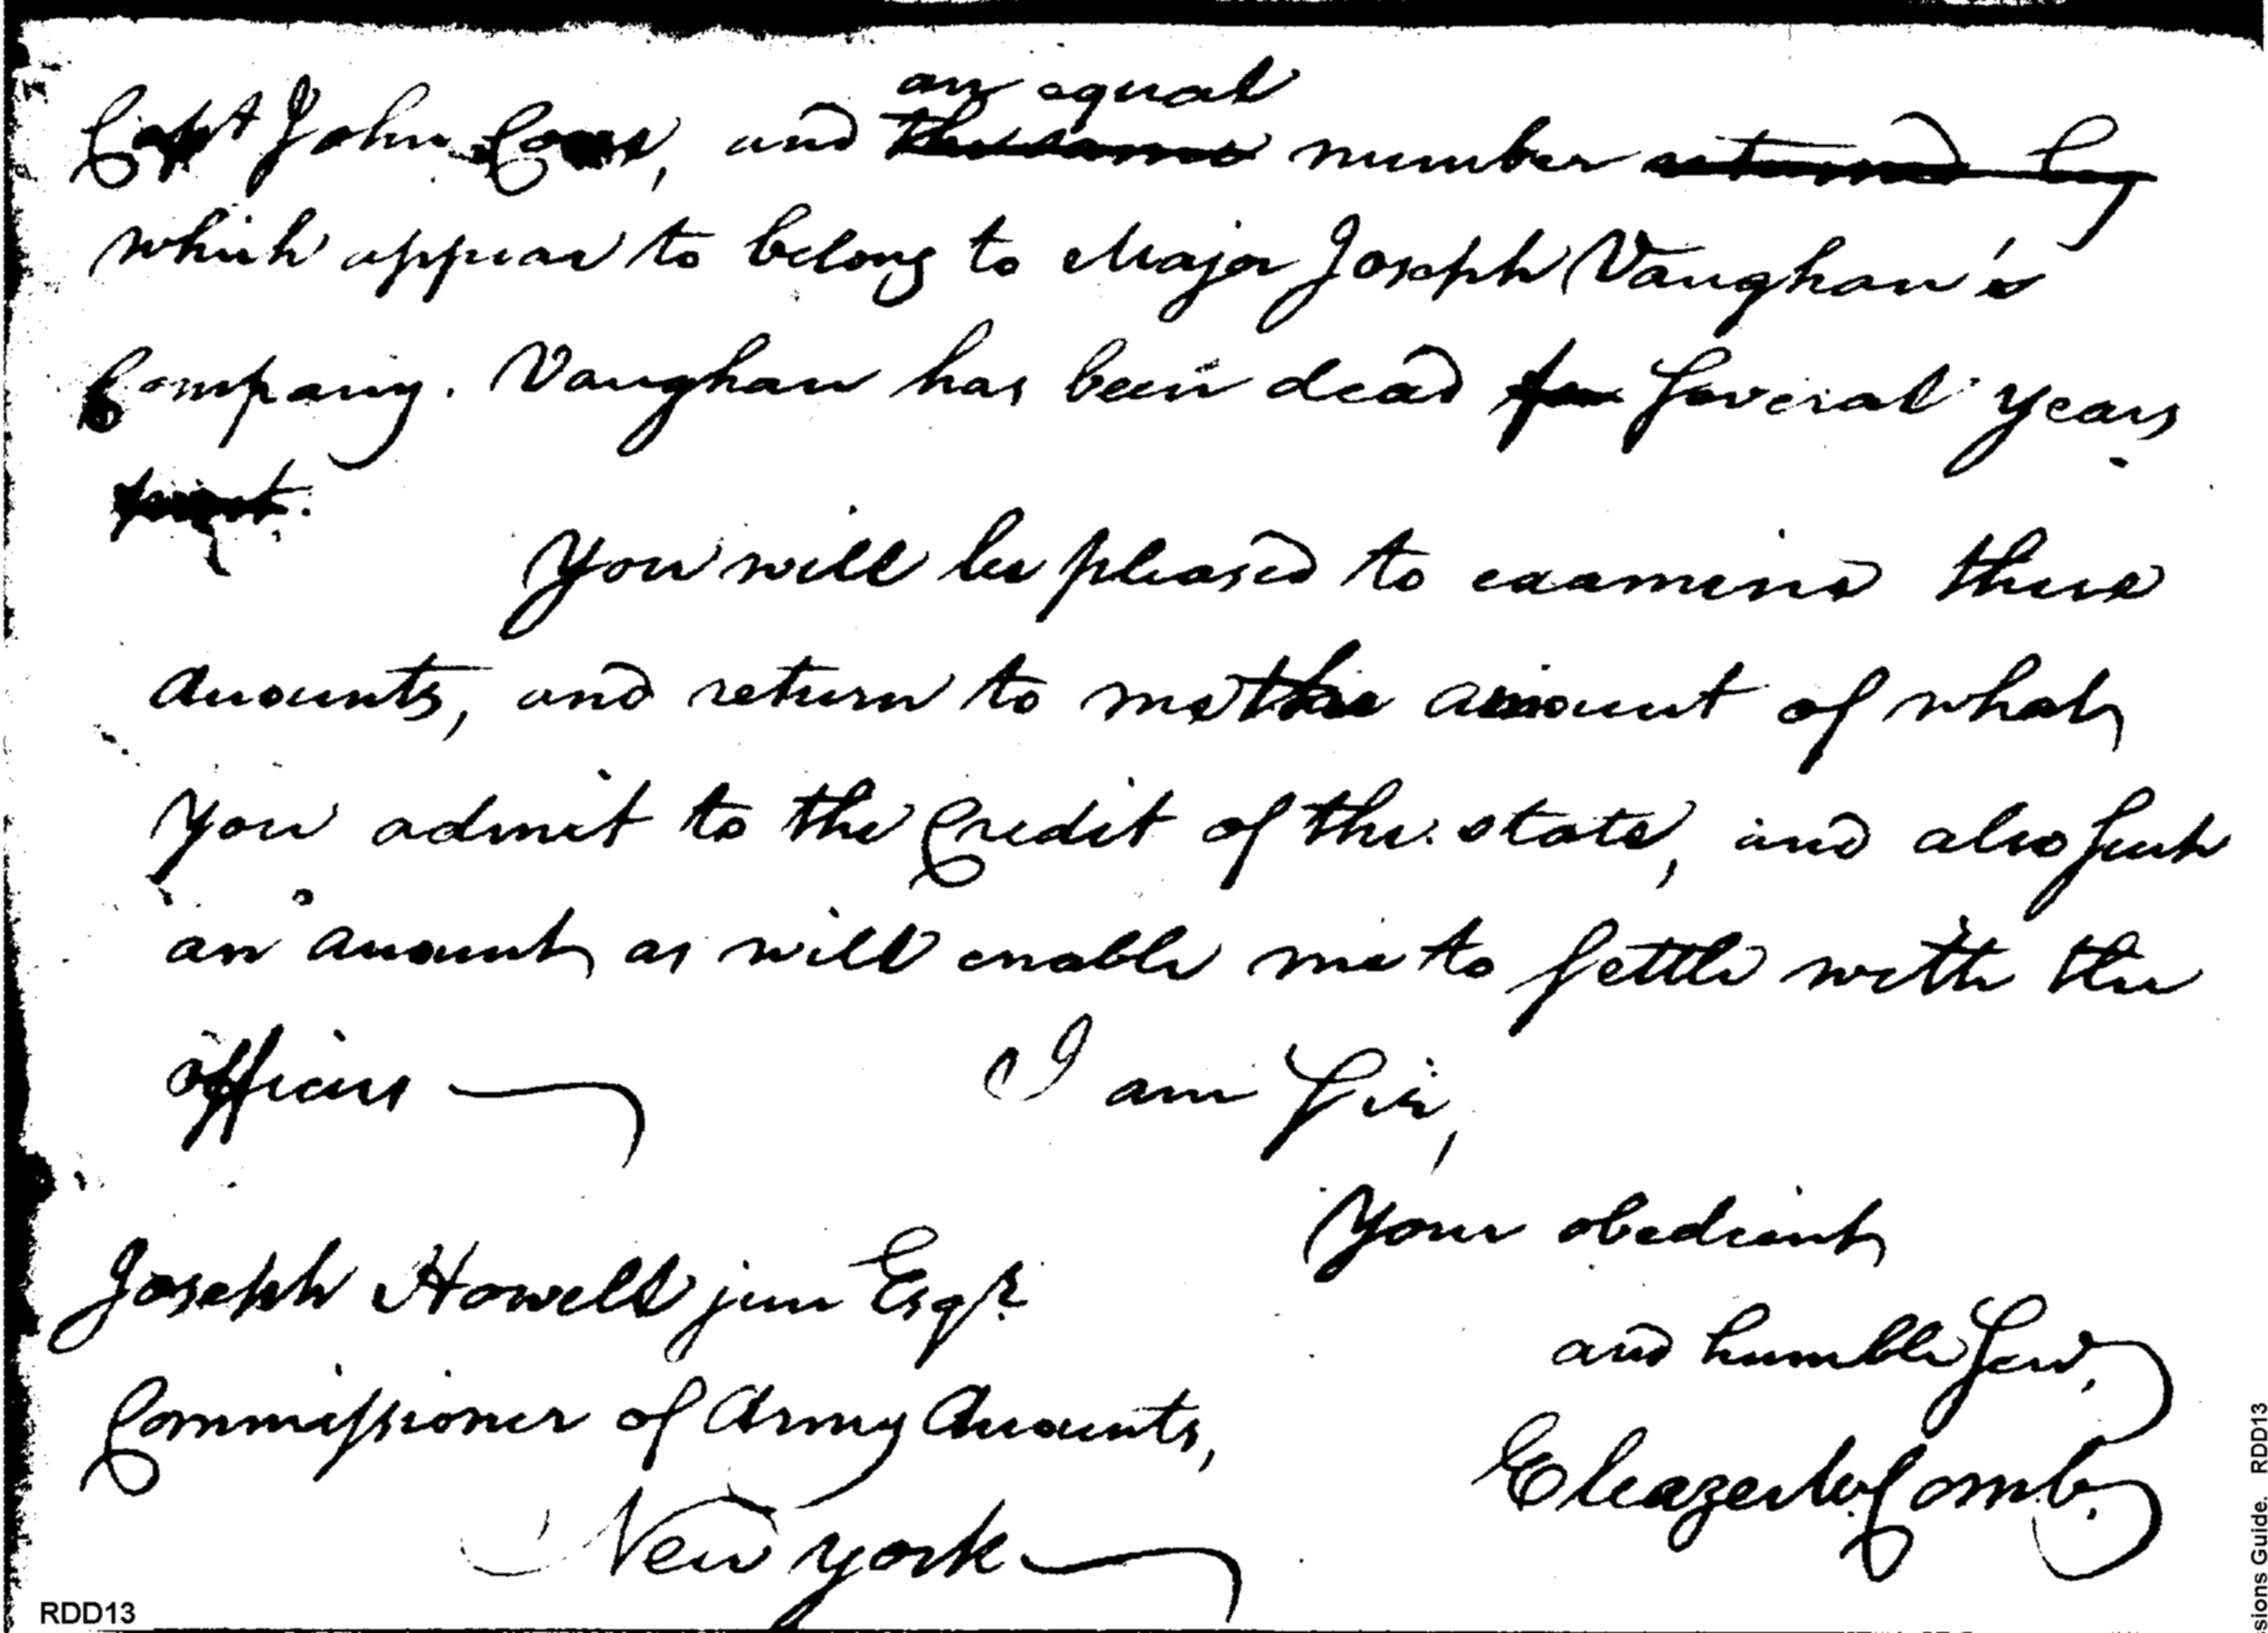 an equal
Capt John Coas, and the same number returned by
which appear to belong to Major Joseph Vaughan's
Company. Vaughan has been dead for several years
You will be pleased to examine these
accounts, and return to me the amount of what
you admit to the Credit of the state, and also such
an account as will enable me to settle with the
officers
I am Sir,
Your obedient
Joseph Howell jun Esqr.
and humble Serv,
Commissioner of Army Accounts,
Eleazer McComb.
New York
RDD13
sions Guide. RDD13